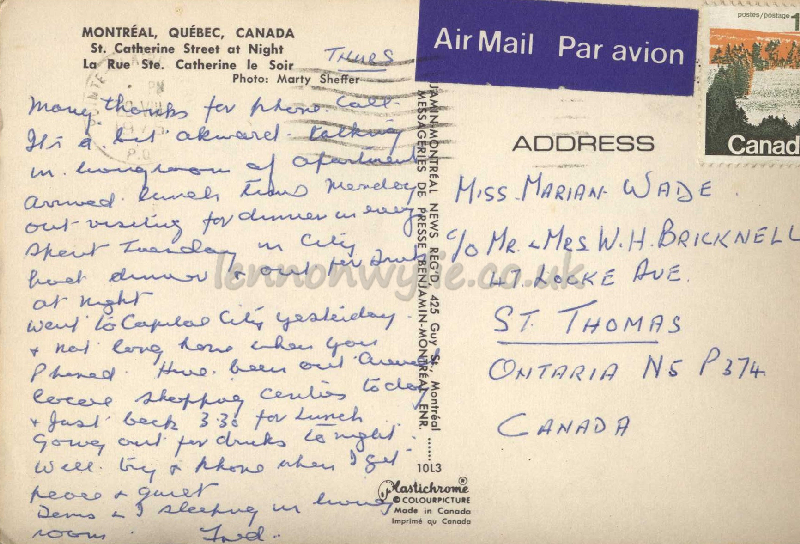 MONTRÉAL, QUÉBEC, CANADA
St. Catherine Street at Night
La Rue Ste. Catherine le Soir
Photo: Marty Sheffer
THURS
Many thanks for phone call.
It's a bit akward talking
in livingroom of apartment
Arrived lunch time Monday
out visiting for dinner in eveg
Spent Tuesday in City
had dinner & out for drink
at night
Went to Capital City yesterday.
& not long home when you
Phoned. Have been out around
local shopping centres today
& Just back 3.30 for Lunch
Going out for drinks to night.
Will try & phone when I get
peace & quiet
& I sleeping in living
room. Fred.
JAMIN-MONTRÉAL NEWS REG'D, 425 Guy St., Montréal
MESSAGERIES DE PRESSE BENJAMIN-MONTRÉAL ENR.
10L3
Plastichrome®
© COLOURPICTURE
Made in Canada
Imprimé au Canada
Air Mail Par avion
postes/postage 1
Canad
ADDRESS
MISS. MARIAN WADE.
C/O MR. & MRS W. H. BRICKNELL
47 LOCKE AVE.
ST. THOMAS
ONTARIO N5 P374
CANADA
lennonwylie.co.uk